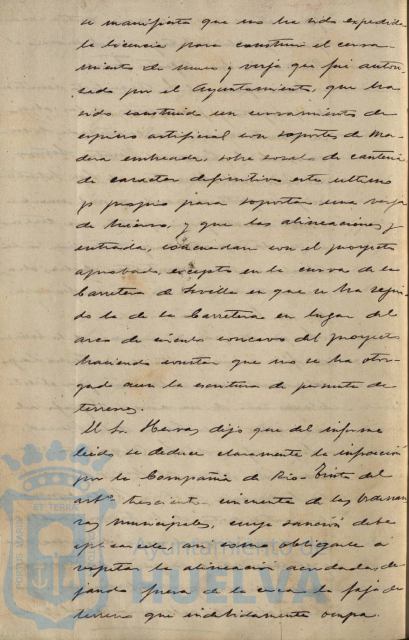 se manifiesta que no ha sido expedida
la licencia para construir el cerra-
miento de muro y verja que fué autori-
zado por el Ayuntamiento, que ha
sido construido un cerramiento de
espino artificial con soportes de ma-
dera embreada, sobre zocalo de cantería
de caracter definitivo este ultimo
y propio para soportar una verja
de hierro, y que las alineaciones y
entrada, concuerdan con el proyecto
aprobado, excepto en la curva de la
Carretera de Sevilla en que se ha segui-
do la de la Carretera en lugar del
arco de circulo concavo del proyecto
haciendo constar que no se ha otor-
gado aun la escritura de permuta de
terrenos.
El Sr. Hervas dijo que del informe
leido se deduce claramente la infracción
por la Compañia de Rio-Tinto del
artº trescientos cincuenta de las Ordenan-
zas municipales, cuya sanción debe
aplicarsele y asi obligarle á
respetar la alineación acordada, de-
jando fuera de la cerca la faja de
terreno que indebidamente ocupa.
PORTUS MARIS ET TERRAE
Ayuntamiento de
HUELVA